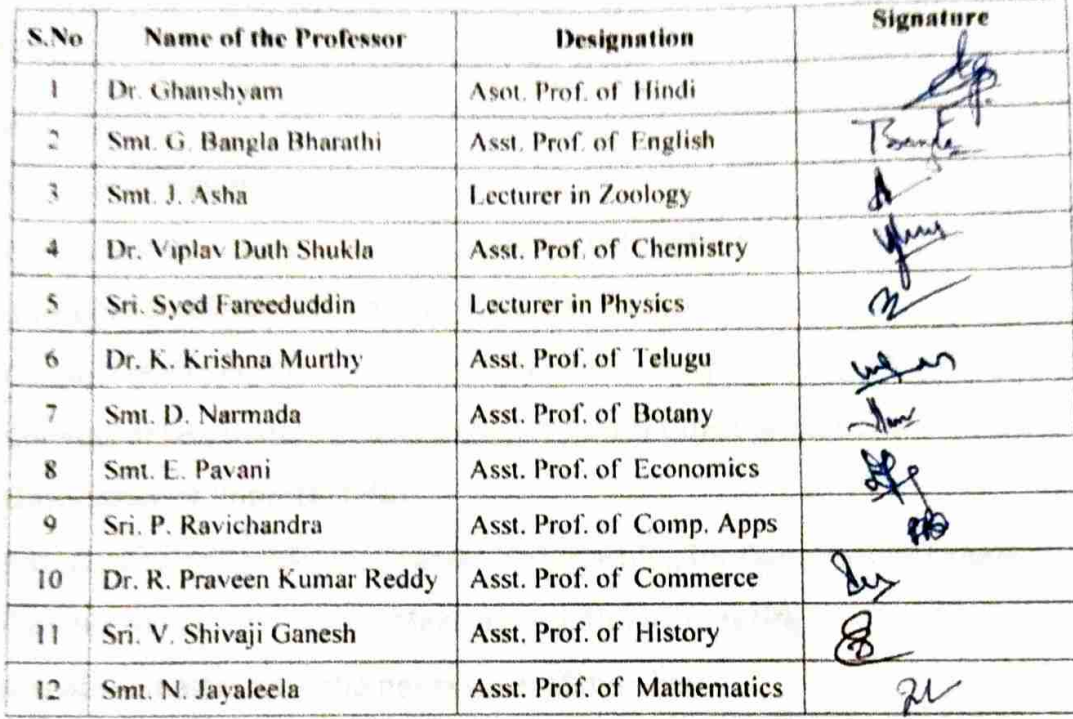 S.No Name of the Professor Designation Signature
1 Dr. Ghanshyam Asot. Prof. of Hindi
2 Smt. G. Bangla Bharathi Asst. Prof. of English
3 Smt. J. Asha Lecturer in Zoology
4 Dr. Viplav Duth Shukla Asst. Prof. of Chemistry
5 Sri. Syed Fareeduddin Lecturer in Physics
6 Dr. K. Krishna Murthy Asst. Prof. of Telugu
7 Smt. D. Narmada Asst. Prof. of Botany
8 Smt. E. Pavani Asst. Prof. of Economics
9 Sri. P. Ravichandra Asst. Prof. of Comp. Apps
10 Dr. R. Praveen Kumar Reddy Asst. Prof. of Commerce
11 Sri. V. Shivaji Ganesh Asst. Prof. of History
12 Smt. N. Jayaleela Asst. Prof. of Mathematics